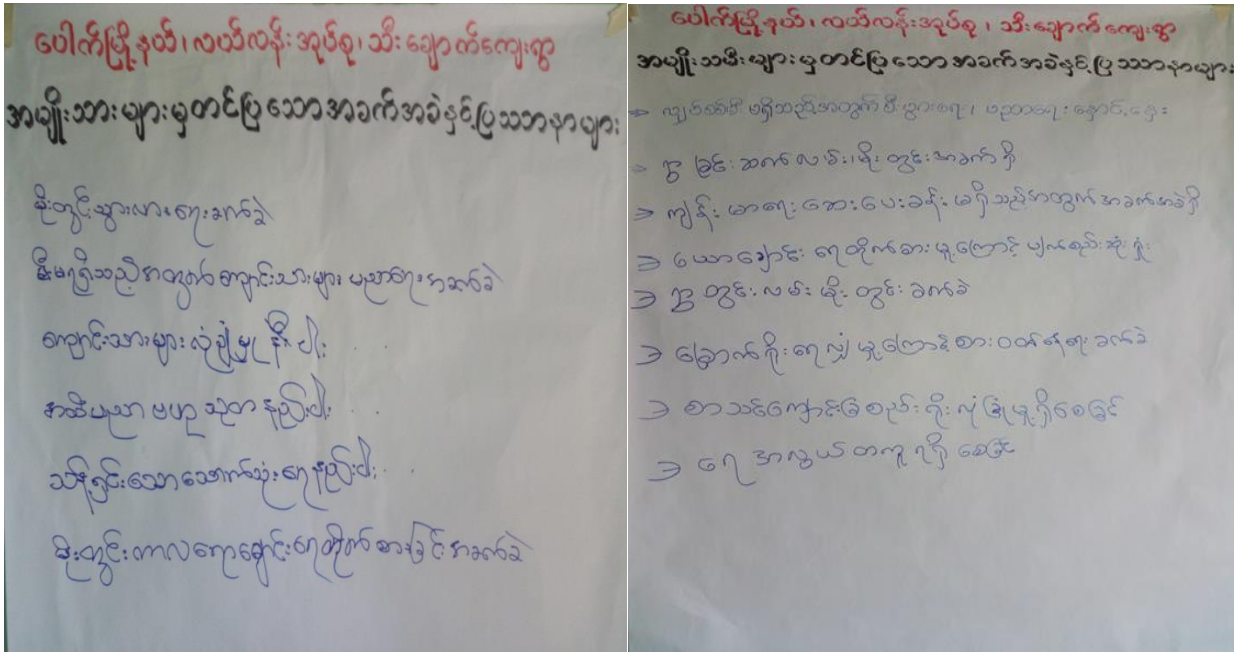 ပေါက်မြို့နယ်၊ လယ်လန်းအုပ်စု၊ သီးချောက်ကျေးရွာ
အမျိုးသားများမှတင်ပြသောအခက်အခဲနှင့်ပြဿနာများ
မိုးတွင်းသွားလာရေးခက်ခဲ
မီးမရရှိသည့်အတွက် ကျောင်းသားများ ပညာရေးအခက်ခဲ
ကျောင်းသားများ လုံခြုံမှု နည်းပါး . . .
အထိပညာ ဗဟုသုတ နည်းပါး . . .
သန့်ရှင်းသောသောက်သုံးရေနည်းပါး . . .
မိုးတွင်းကာလယောချောင်းရေတိုက်စားခြင်းအခက်ခဲ
ပေါက်မြို့နယ်၊ လယ်လန်းအုပ်စု၊ သီးချောက်ကျေးရွာ
အမျိုးသမီးများမှတင်ပြသောအခက်အခဲနှင့်ပြဿနာများ
⇒ လျှပ်စစ်မီး မရှိသည့်အတွက် စီးပွားရေး၊ ပညာရေး နှောင့်နှေး
⇒ ရွာခြင်းဆက်လမ်း မိုးတွင်းအခက်ရှိ
⇒ ကျန်းမာရေးဆေးပေးခန်း မရှိသည့်အတွက် အခက်အခဲရှိ
⇒ ယောချောင်း ရေတိုက်စားမှုကြောင့် ပျက်စည်းဆုံးရှုံး
⇒ ရွာတွင်းလမ်း မိုးတွင်းခက်ခဲ
⇒ မြောက်ရိုးရေလျှံမှုကြောင့် စားဝတ်နေရေးခက်ခဲ
⇒ စာသင်ကျောင်းခြံစည်းရိုး လုံခြုံမှုရှိစေခြင်
⇒ ရေ အလွယ်တကူ ရရှိစေခြင်